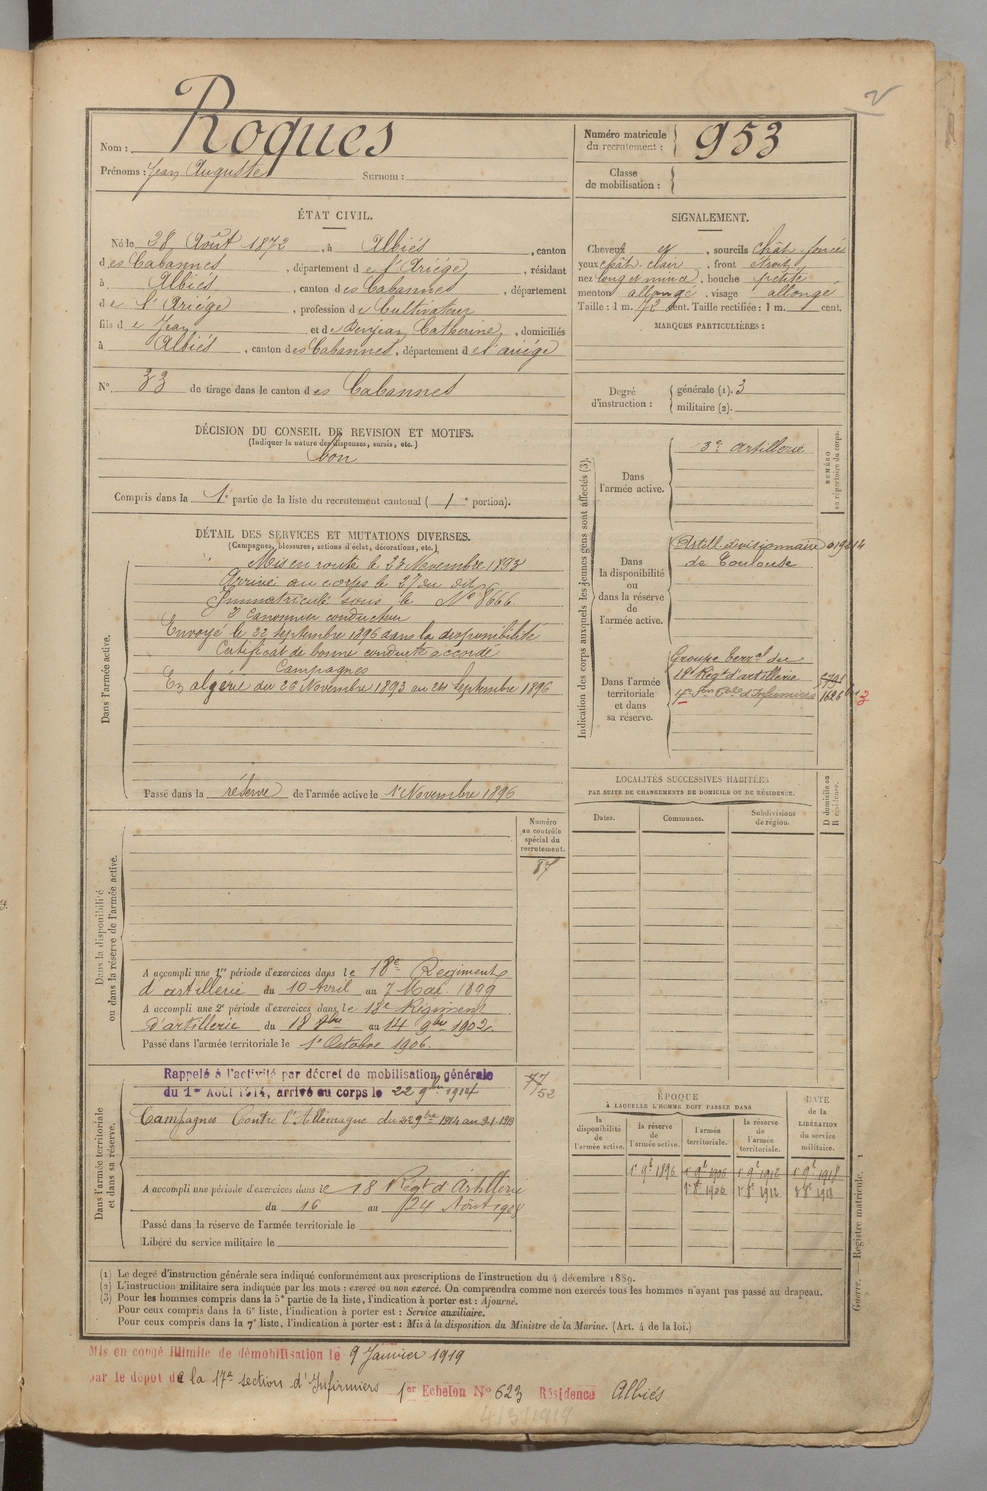 2
Nom : Roques
Prénoms : Jean Auguste Surnom :
Numéro matricule du recrutement : 953
Classe de mobilisation :
ÉTAT CIVIL.
Né le 28 Août 1872, à Albiés, canton
des Cabannes, département de l'Ariége, résidant
à Albiés, canton des Cabannes, département
de l'Ariége, profession de Cultivateur
fils de Jean et de Catherine, domiciliés
à Albiés, canton des Cabannes, département de l'ariége
N° 33 de tirage dans le canton des Cabannes
SIGNALEMENT.
Cheveux et, sourcils chât. foncé
yeux chât. clair, front étroit
nez long et mince, bouche petite
menton allongé, visage allongé
Taille : 1 m. 72 cent. Taille rectifiée : 1 m. cent.
MARQUES PARTICULIÈRES :
Degré d'instruction : générale (1). 3
militaire (2).
DÉCISION DU CONSEIL DE REVISION ET MOTIFS.
(Indiquer la nature des dispenses, sursis, etc.)
bon
Compris dans la 1e partie de la liste du recrutement cantonal ( 1e portion).
DÉTAIL DES SERVICES ET MUTATIONS DIVERSES.
(Campagnes, blessures, actions d'éclat, décorations, etc.)
Dans l'armée active.
Mis en route le 23 Novembre 1893
Arrivé au corps le 27 du dit
Immatriculé sous le N° 8666
2e Canonnier conducteur
Envoyé le 22 septembre 1896 dans la disponibilité
Certificat de bonne conduite accordé
Campagnes
En algérie du 26 Novembre 1893 au 24 Septembre 1896
Passé dans la réserve de l'armée active le 1er Novembre 1896
Indication des corps auxquels les jeunes gens sont affectés (3).
NUMÉRO au répertoire du corps.
Dans l'armée active.
13e artillerie
Dans la disponibilité ou dans la réserve de l'armée active.
Artill. divisionnaire 01914
de Toulouse
Dans l'armée territoriale et dans sa réserve.
Groupe terral du
18e Régt d'artillerie
17e Son d'Infirmiers
LOCALITÉS SUCCESSIVES HABITÉES
PAR SUITE DE CHANGEMENTS DE DOMICILE OU DE RÉSIDENCE.
Dates. Communes. Subdivisions de région. D domicile ou R résidence.
Dans la disponibilité ou dans la réserve de l'armée active.
Numéro au contrôle spécial du recrutement.
87
A accompli une 1re période d'exercices dans le 18e Régiment
d'artillerie du 10 Avril au 7 Mai 1899
A accompli une 2e période d'exercices dans le 18e Régiment
d'artillerie du 18 8bre au 14 9bre 1902
Passé dans l'armée territoriale le 1er Octobre 1906.
Dans l'armée territoriale et dans sa réserve.
Rappelé à l'activité par décret de mobilisation générale
du 1er Août 1914, arrivé au corps le 22 9bre 1914
77
52
Campagnes Contre l'Allemagne du 22 9bre 1914 au
A accompli une période d'exercices dans le 18 Régt d'Artillerie
du 16 au 24 Août 1908
Passé dans la réserve de l'armée territoriale le
Libéré du service militaire le
ÉPOQUE
À LAQUELLE L'HOMME DOIT PASSER DANS
la disponibilité de l'armée active. la réserve de l'armée active. l'armée territoriale. la réserve de l'armée territoriale. DATE de la LIBÉRATION du service militaire.
1er 9b 1896 1er 9b 1906 1er 9b 1912 1er 9b 1918
1er 8b 1906 1er 8b 1912 1er 8b 1918
Guerre. — Registre matricule. 1
(1) Le degré d'instruction générale sera indiqué conformément aux prescriptions de l'instruction du 4 décembre 1889.
(2) L'instruction militaire sera indiquée par les mots : exercé ou non exercé. On comprendra comme non exercés tous les hommes n'ayant pas passé au drapeau.
(3) Pour les hommes compris dans la 5e partie de la liste, l'indication à porter est : Ajourné.
Pour ceux compris dans la 6e liste, l'indication à porter est : Service auxiliaire.
Pour ceux compris dans la 7e liste, l'indication à porter est : Mis à la disposition du Ministre de la Marine. (Art. 4 de la loi.)
Mis en congé illimité de démobilisation le 9 Janvier 1919
par le dépôt de la 17e section d'Infirmiers 1er Echelon N° 623 Résidence Albiés
4/3/1919